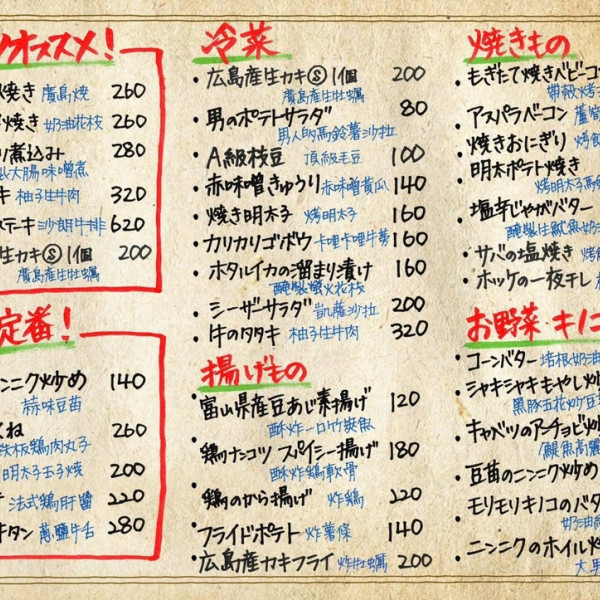 オススメ!
焼き 廣島燒 260
焼き 奶油花枝 260
り煮込み 280
大腸味噌煮
キ 柚子生牛肉 320
ステーキ 沙朗牛排 620
生カキⓈ1個 200
廣島產生牡蠣
定番!
ンニク炒め 140
蒜味豆苗
くね 260
鉄板鶏肉丸子
明太子玉子燒 200
法式鶏肝醬 220
キタン 蔥鹽牛舌 280
冷菜
・広島産生カキⓈ1個 200
廣島產生牡蠣
・男のポテトサラダ 80
男人的馬鈴薯沙拉
・A級枝豆 頂級毛豆 100
・赤味噌きゅうり 赤味噌黃瓜 140
・焼き明太子 烤明太子 160
・カリカリゴボウ 卡哩卡哩牛蒡 160
・ホタルイカの溜まり漬け 160
醃製螢火花枝
・シーザーサラダ 凱薩沙拉 200
・牛のタタキ 柚子生牛肉 320
揚げもの
・富山県産豆あじ素揚げ 120
酥炸一口竹筴魚
・鶏ナンコツ スパイシー揚げ 180
酥炸鶏軟骨
・鶏のから揚げ 炸鶏 220
・フライドポテト 炸薯條 140
・広島産カキフライ 炸牡蠣 200
焼きもの
・もぎたて焼きベビーコ
帶殼烤
・アスパラベーコン 蘆筍
・焼きおにぎり 烤飯
・明太ポテト焼き
烤明太子馬
・塩辛じゃがバター
醃製生魷魚奶
・サバの塩焼き 烤
・ホッケの一夜干し
お野菜・キノコ
・コーンバター 培根奶油
・シャキシャキもやし炒
黑豚五花炒豆
・キャベツのアーチョビ炒
鯷魚高麗
・豆苗のニンニク炒め
・モリモリキノコのバタ
奶油
・ニンニクのホイル焼
大